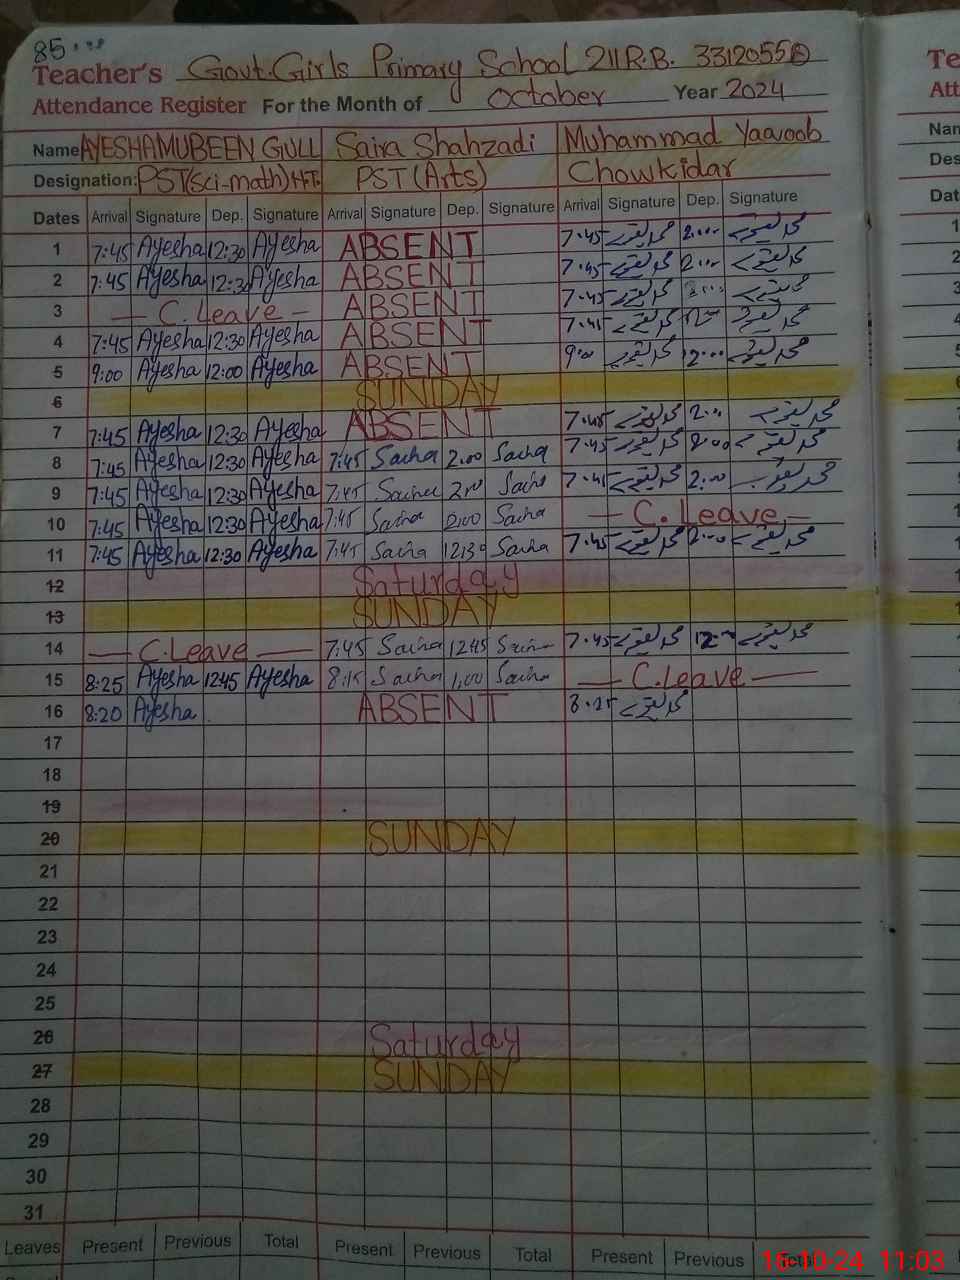 85
Teacher's Govt.Girls Primary School 211R.B. 33120558
Attendance Register For the Month of October Year 2024
Name AYESHAMUBEEN GULL Saira Shahzadi Muhammad Yaqoob
Designation: PST(Sci-math)H.T. PST (Arts) Chowkidar
Dates Arrival Signature Dep. Signature Arrival Signature Dep. Signature Arrival Signature Dep. Signature
1 7:45 Ayesha 12:30 Ayesha ABSENT 7:45 محمد یعقوب 2:00 محمد یعقوب
2 7:45 Ayesha 12:30 Ayesha ABSENT 7:45 محمد یعقوب 2:00 محمد یعقوب
3 C. Leave ABSENT 7:45 محمد یعقوب محمد یعقوب
4 7:45 Ayesha 12:30 Ayesha ABSENT 7:45 محمد یعقوب محمد یعقوب
5 9:00 Ayesha 12:00 Ayesha ABSENT 9:00 محمد یعقوب 12:00 محمد یعقوب
6 SUNDAY
7 7:45 Ayesha 12:30 Ayesha ABSENT 7:45 محمد یعقوب 2:00 محمد یعقوب
8 7:45 Ayesha 12:30 Ayesha 7:45 Saira 2:00 Saira 7:45 محمد یعقوب 2:00 محمد یعقوب
9 7:45 Ayesha 12:30 Ayesha 7:45 Saira 2:00 Saira 7:45 محمد یعقوب 2:00 محمد یعقوب
10 7:45 Ayesha 12:30 Ayesha 7:45 Saira 2:00 Saira C. Leave
11 7:45 Ayesha 12:30 Ayesha 7:45 Saira 12:30 Saira 7:45 محمد یعقوب 2:00 محمد یعقوب
12 Saturday
13 SUNDAY
14 C.Leave 7:45 Saira 12:45 Saira 7:45 محمد یعقوب محمد یعقوب
15 8:25 Ayesha 12:45 Ayesha 8:15 Saira 1:00 Saira C.Leave
16 8:20 Ayesha ABSENT محمد یعقوب
17
18
19
20 SUNDAY
21
22
23
24
25
26 Saturday
27 SUNDAY
28
29
30
31
Leaves Present Previous Total Present Previous Total Present Previous Total
16-10-24 11:03